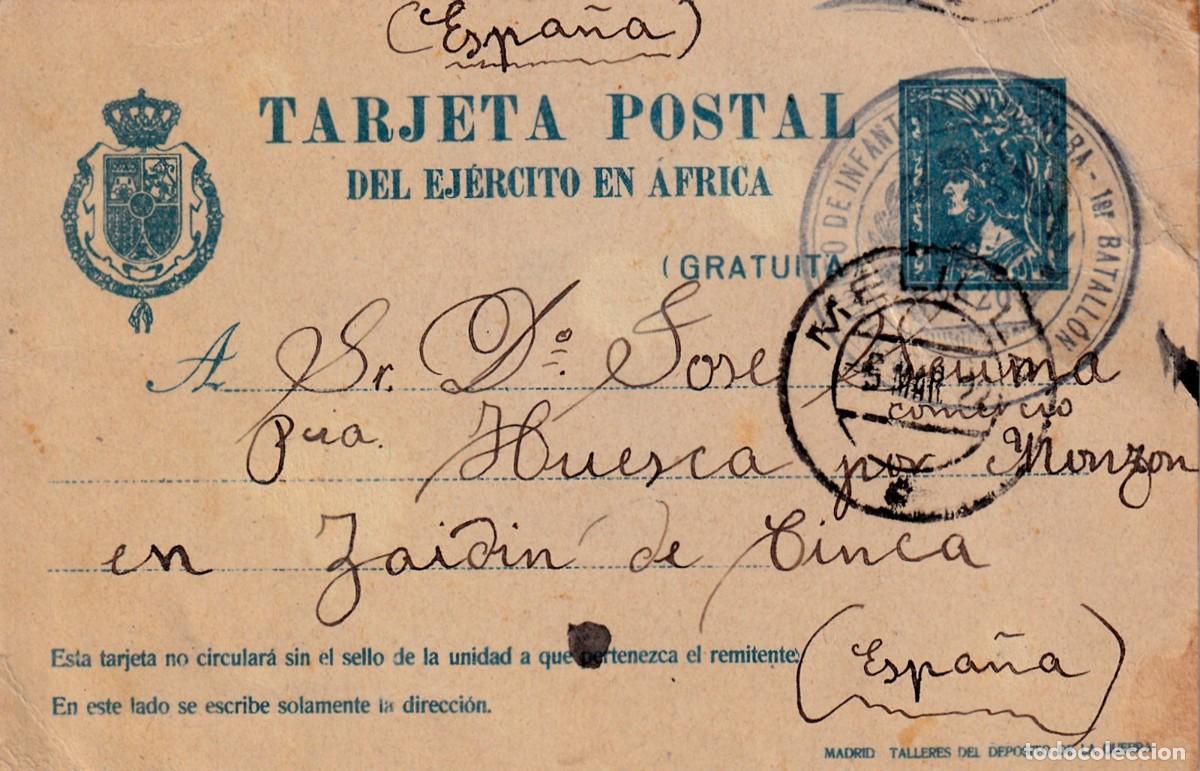 (España)
TARJETA POSTAL
DEL EJÉRCITO EN ÁFRICA
(GRATUITA
DE INFANT ERA - 1er BATALLÓN
MELILL
5 MAR
A Sr. Dº. Jose
comercio
Pva. Huesca por Monzon
en Zaidin de Cinca
(España)
Esta tarjeta no circulará sin el sello de la unidad a que pertenezca el remitente.
En este lado se escribe solamente la dirección.
MADRID TALLERES DEL DEPOSITO DE LA GUERRA
todocoleccion